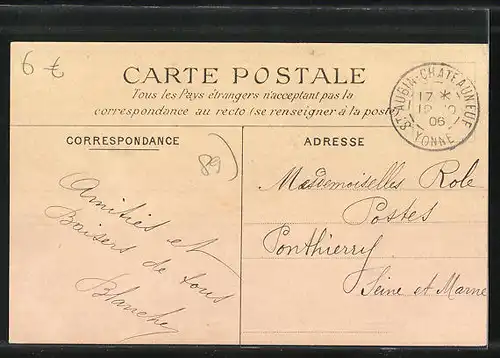 6 €
CARTE POSTALE
Tous les Pays étrangers n'acceptant pas la
correspondance au recto (se renseigner à la poste
ST AUBIN-CHATEAUNEUF
17 *
06
YONNE
CORRESPONDANCE
ADRESSE
89
Amitiés et
Baisers de tous
Blanche
Mesdemoiselles Role
Postes
Ponthierry
Seine et Marne